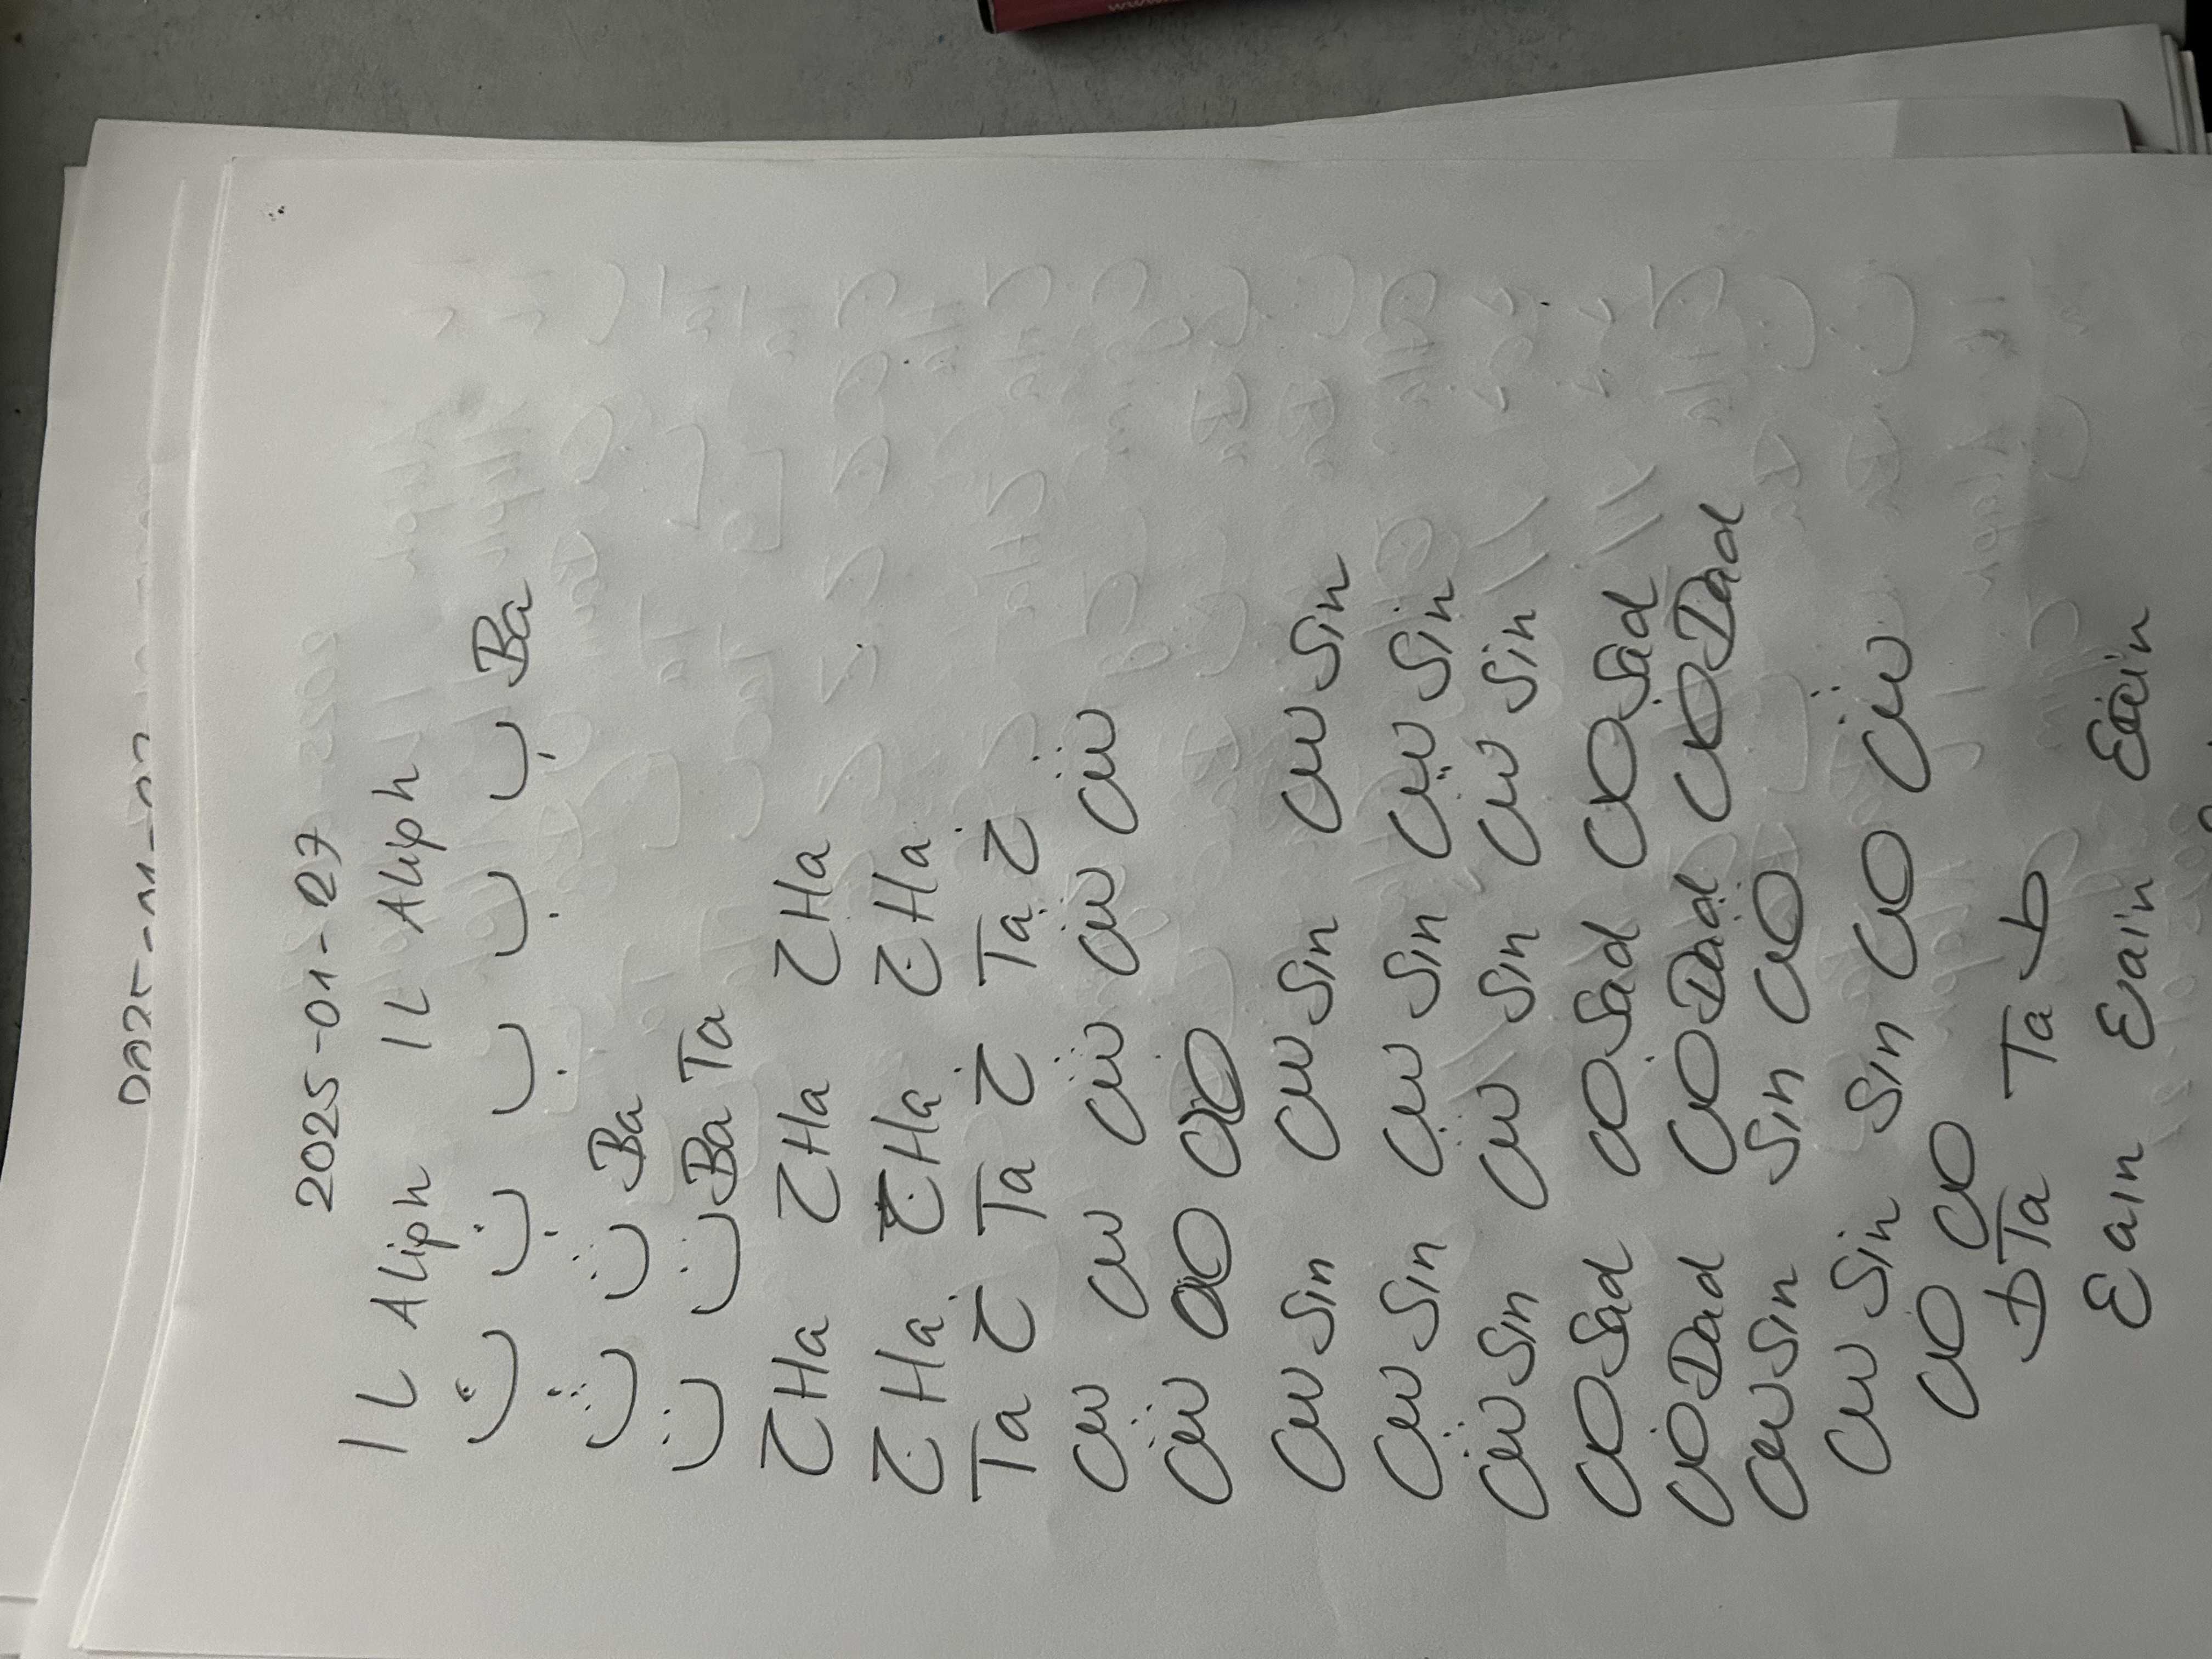 2025-01-27
ا L Aliph ا L Aliph
ت ب ب ب ب Ba
ث ت Ba
ت ت Ba Ta
ح Ha ح Ha ح Ha
ج Ha ج Ha ج Ha
Ta خ Ta خ Ta خ
س س ش ش ش
ش ص ص
س Sin س Sin س Sin
س Sin س Sin Sin
ش Sin س Sin س Sin
ص Sad ص Sad ص Sad
ض Dad ض Dad ص Dad
س Sin Sin ض
س Sin Sin ص ش
ص ص
ط Ta Ta ط
ع ain ع ain ع ain